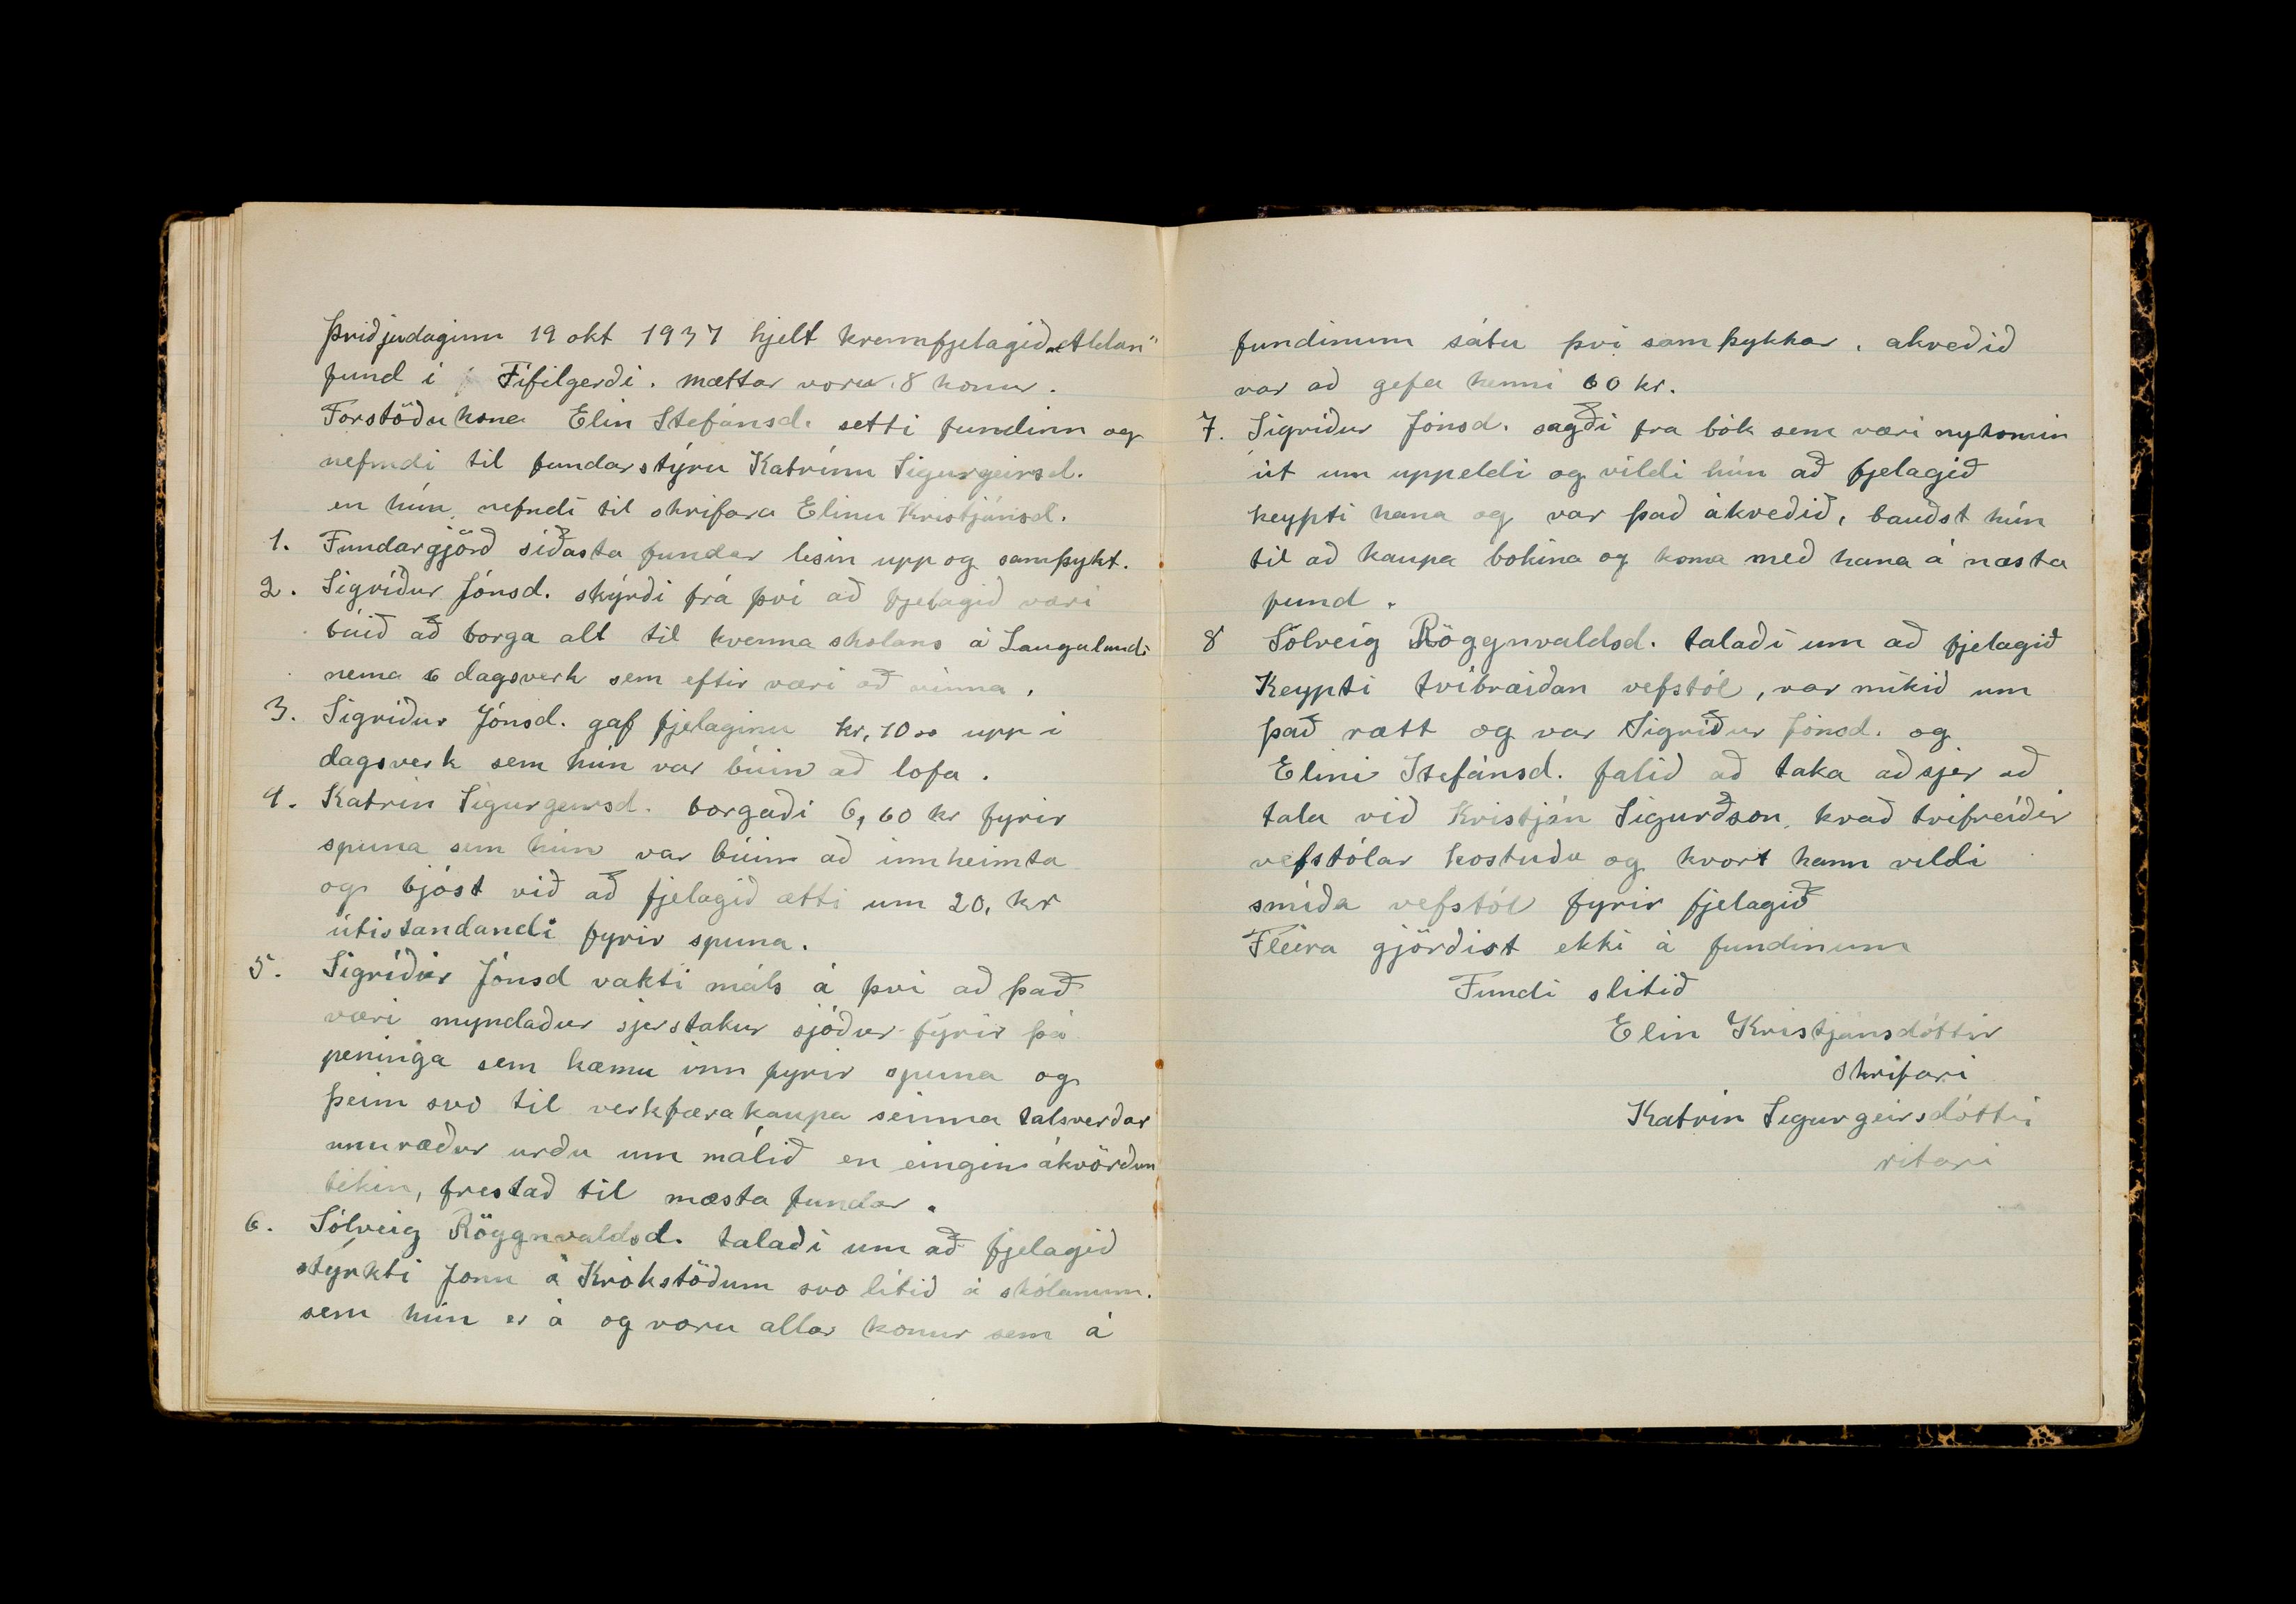 Þriðjudaginn 19 okt 1937 hjelt kvennfjelagið „Aldan"
fund i Fífilgerði. mættar voru 8 konur.
Forstöðukona Elin Stefánsd. setti fundinn og
nefndi til fundarstýru Katrínu Sigurgeirsd.
en hún nefndi til skrifara Elinu Kristjánsd.
1. Fundargjörð síðasta fundar lesin upp og samþykt.
2. Sigríður Jónsd. skýrði frá því að fjelagið væri
búið að borga alt til kvenna skolans á Laugalandi
nema 6 dagsverk sem eftir væri að vinna.
3. Sigríður Jónsd. gaf fjelaginu kr, 10 00 upp i
dagsverk sem hún var búin að lofa.
4. Katrin Sigurgeirsd. borgaði 6,60 kr fyrir
spuna sem hún var búin að innheimta
og bjóst við að fjelagið ætti um 20, kr
útistandandi fyrir spuna.
5. Sigríður Jónsd vakti máls á því að það
væri myndaður sjerstakur sjóður fyrir þá
peninga sem kæmu inn fyrir spuna og
þeim svo til verkfærakaupa seinna talsverðar
umræður urðu um málið en eingin ákvörðun
tekin, frestað til næsta fundar.
6. Sólveig Röggnvaldsd. talaði um að fjelagið
stýrkti Jonu á Krókstöðum svo lítið á skólanum.
sem hún er á og voru allar konur sem á
fundinum sátu því samþykkar. akveðið
var að gefa henni 60 kr.
7. Sigríður Jónsd. sagði fra bók sem væri nykomin
út um uppeldi og vildi hún að fjelagið
keypti hana og var það ákveðið, bauðst hún
til að kaupa bokina og koma með hana á næsta
fund.
8 Sólveig Röggnvaldsd. talaði um að fjelagið
Keypti tvíbraiðan vefstól, var mikið um
það rætt og var Sigríður Jónsd. og
Elini Stefánsd. falið að taka að sjer að
tala við Kristján Sigurðson, kvað tvífreíðir
vefstólar kostuðu og hvort hann vildi
smíða vefstól fyrir fjelagið
Fleira gjörðist ekki á fundinum
Fundi slitið
Elin Kristjánsdóttir
skrifari
Katrín Sigurgeirsdóttir
ritari